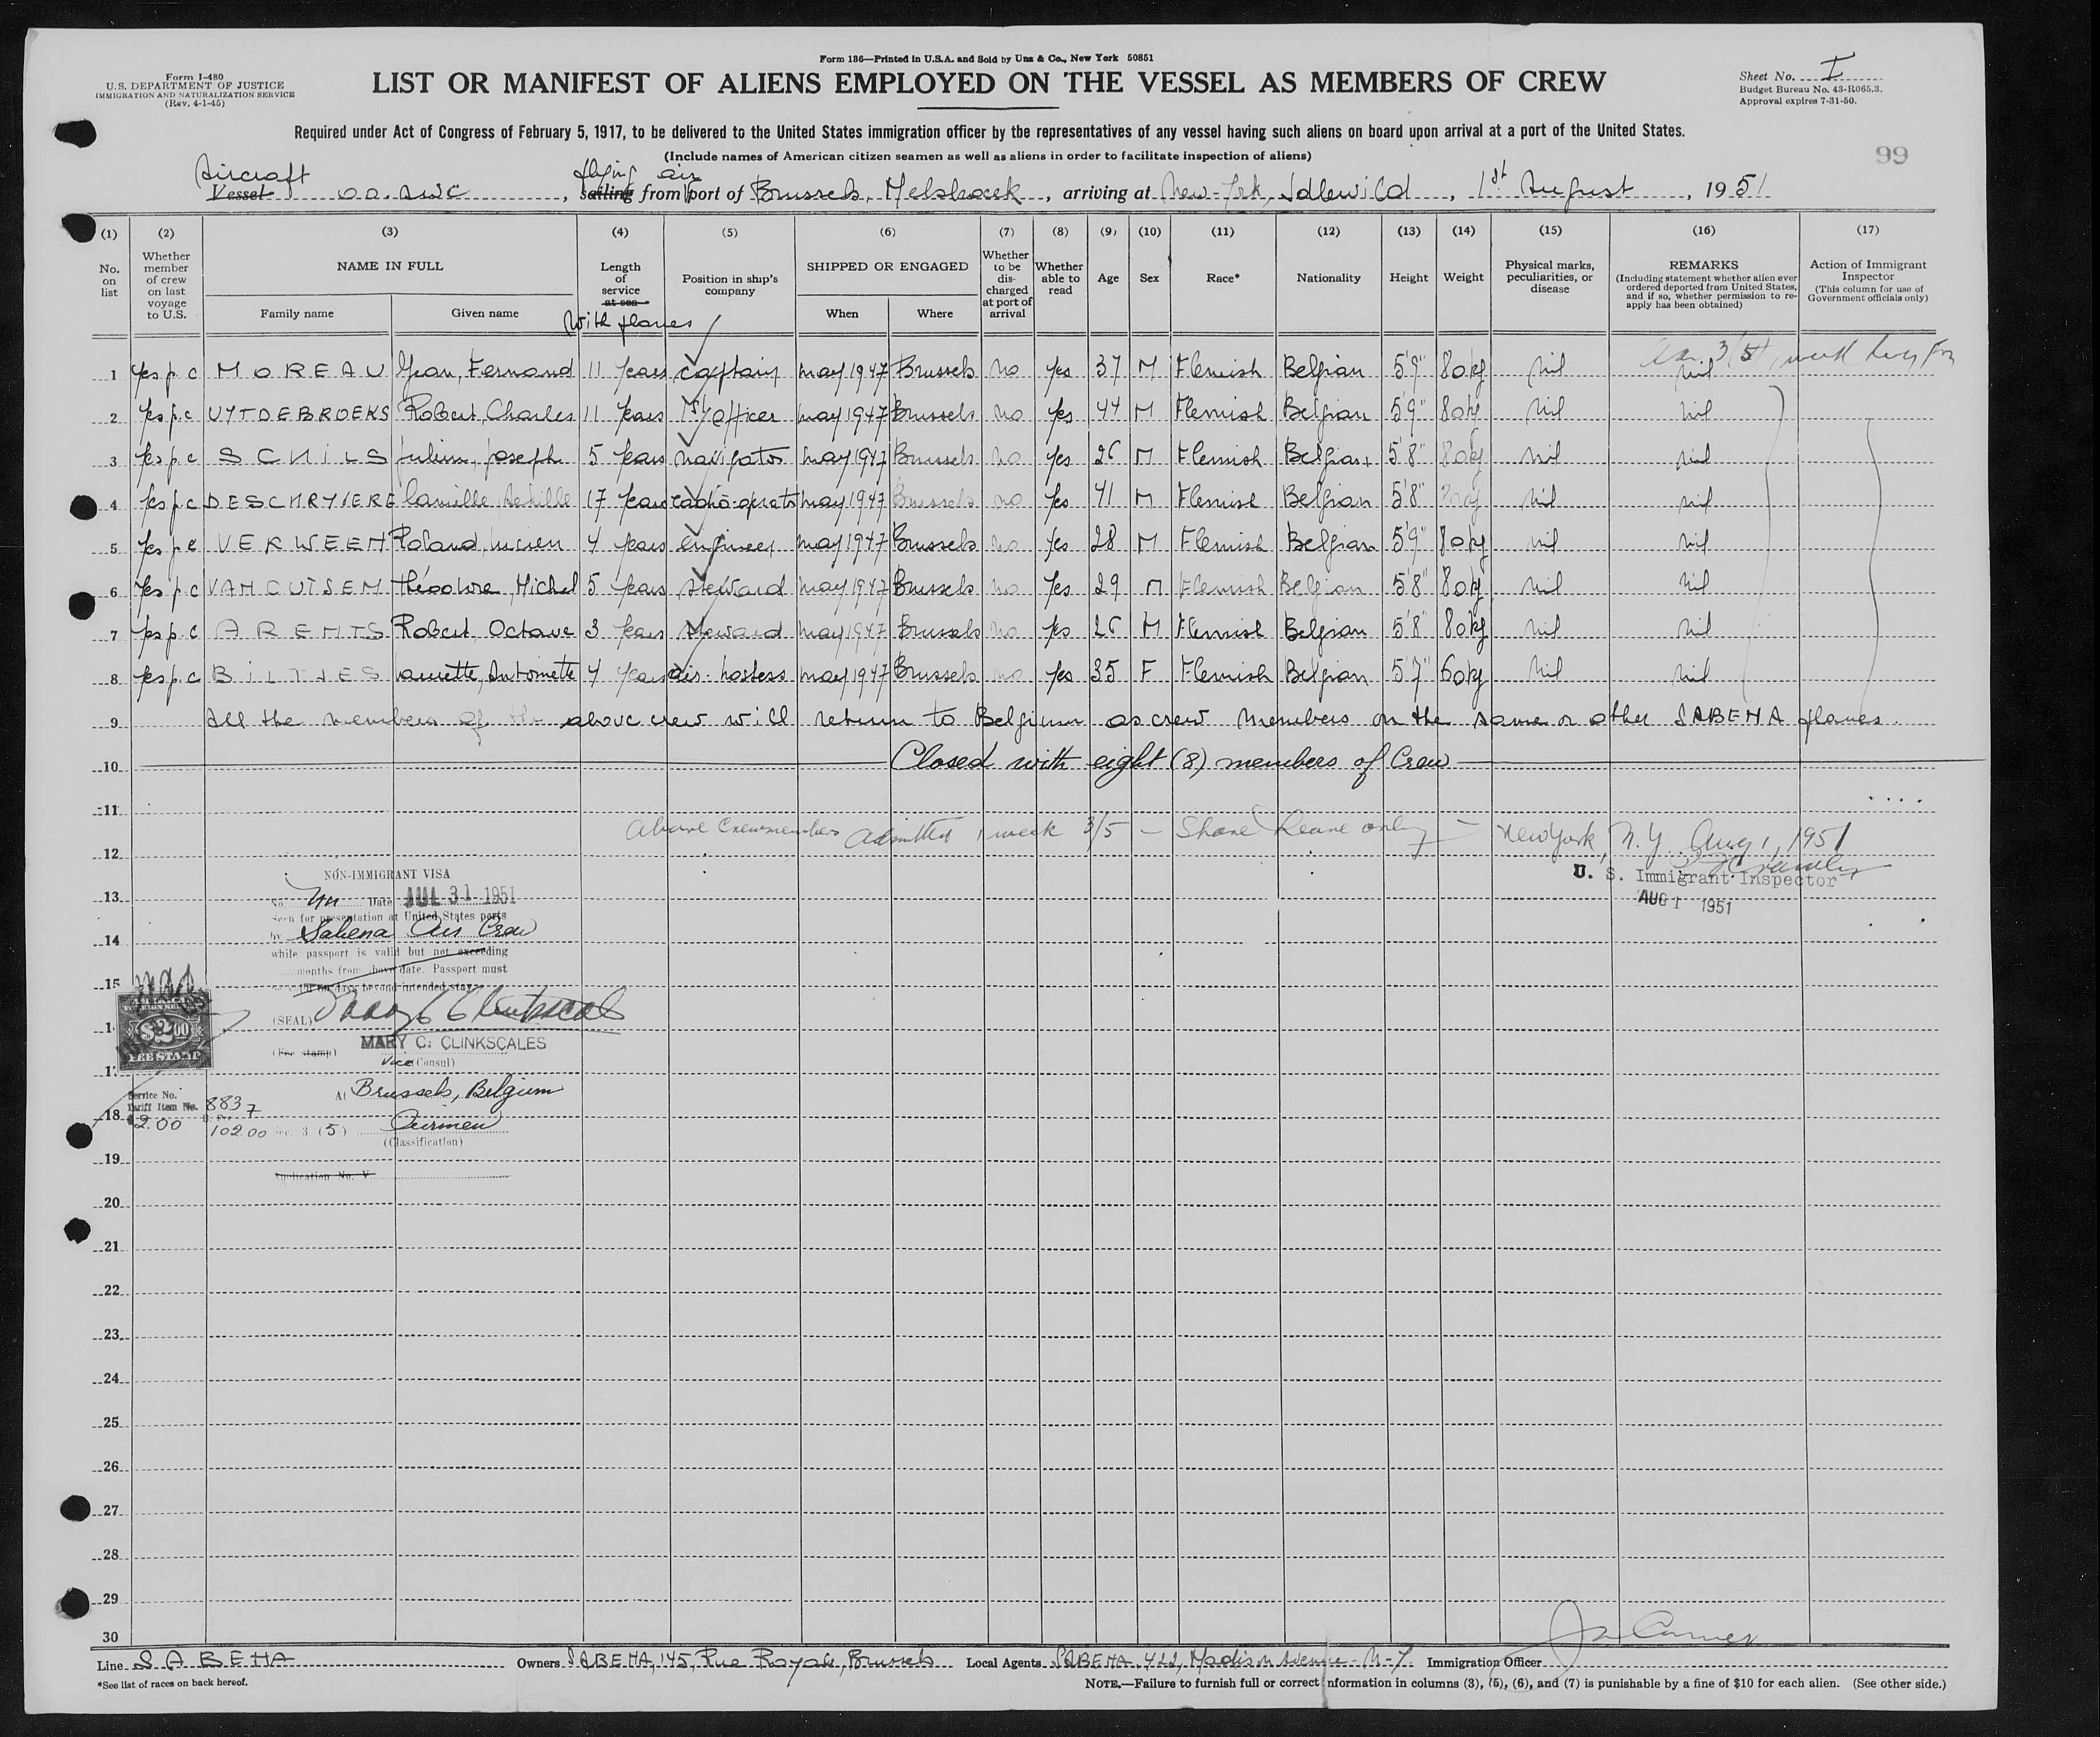 Form 136—Printed in U.S.A. and Sold by Unz & Co., New York 50851
Form I-480
U.S. DEPARTMENT OF JUSTICE
IMMIGRATION AND NATURALIZATION SERVICE
(Rev. 4-1-45)
LIST OR MANIFEST OF ALIENS EMPLOYED ON THE VESSEL AS MEMBERS OF CREW
Sheet No. I
Budget Bureau No. 43-R065.3.
Approval expires 7-31-50.
Required under Act of Congress of February 5, 1917, to be delivered to the United States immigration officer by the representatives of any vessel having such aliens on board upon arrival at a port of the United States.
(Include names of American citizen seamen as well as aliens in order to facilitate inspection of aliens)
99
Aircraft flying air
Vessel OO.AWC, sailing from port of Brussels, Melsbroek, arriving at New-York, Idlewild, 1st August, 1951
(1) (2) (3) (4) (5) (6) (7) (8) (9) (10) (11) (12) (13) (14) (15) (16) (17)
No. on list
Whether member of crew on last voyage to U.S.
NAME IN FULL
Family name
Given name
Length of service at sea
With planes
Position in ship's company
SHIPPED OR ENGAGED
When
Where
Whether to be discharged at port of arrival
Whether able to read
Age
Sex
Race*
Nationality
Height
Weight
Physical marks, peculiarities, or disease
REMARKS
(Including statement whether alien ever ordered deported from United States, and if so, whether permission to reapply has been obtained)
Action of Immigrant Inspector
(This column for use of Government officials only)
1 yes p.c MOREAU Jean, Fernand 11 years captain may 1947 Brussels no yes 37 M Flemish Belgian 5'9" 80kg nil nil
2 yes p.c UYTDEBROEKS Robert, Charles 11 years officer may 1947 Brussels no yes 44 M Flemish Belgian 5'9" 80kg nil nil
3 yes p.c SCHILS Julien, Joseph 5 years navigator may 1947 Brussels no yes 26 M Flemish Belgian 5'8" 80kg nil nil
4 yes p.c DESCHRYVERE Camille, Achille 17 years radio-operator may 1947 Brussels no yes 41 M Flemish Belgian 5'8" 80kg nil nil
5 yes p.c VERWEEN Roland, Lucien 4 years engineer may 1947 Brussels no yes 28 M Flemish Belgian 5'9" 80kg nil nil
6 yes p.c VANCUTSEM Théodore, Michel 5 years steward may 1947 Brussels no yes 29 M Flemish Belgian 5'8" 80kg nil nil
7 yes p.c ARENTS Robert, Octave 3 years steward may 1947 Brussels no yes 26 M Flemish Belgian 5'8" 80kg nil nil
8 yes p.c BILTJES Laurette, Antoinette 4 years air-hostess may 1947 Brussels no yes 35 F Flemish Belgian 5'7" 60kg nil nil
9 All the members of the above crew will return to Belgium as crew members on the same or other SABENA planes.
10 Closed with eight (8) members of Crew
11
Above Crewmembers admitted 1 week 3/5 — Shore Leave only — New York, N.Y. Aug 1, 1951
12
U. S. Immigrant Inspector
AUG 1 1951
NON-IMMIGRANT VISA
13 No. Date JUL 31 1951
Seen for presentation at United States ports
14 by Sabena Air Crew
while passport is valid but not exceeding
months from above date. Passport must
15
(SEAL) Mary C Clinkscales
AMERICAN FOREIGN SERVICE
$2.00
FEE STAMP
MARY C. CLINKSCALES
(Fee stamp) Vice (Consul)
Service No. 8837
At Brussels, Belgium
Tariff Item No.
18
$2.00 102.00 Sec. 3 (5) Airmen
(Classification)
19
Application No. V
20
21
22
23
24
25
26
27
28
29
30
Line SABENA Owners SABENA, 145, Rue Royale, Brussels Local Agents SABENA 422, Madison Avenue - N-Y. Immigration Officer
*See list of races on back hereof.
NOTE.—Failure to furnish full or correct information in columns (3), (5), (6), and (7) is punishable by a fine of $10 for each alien. (See other side.)